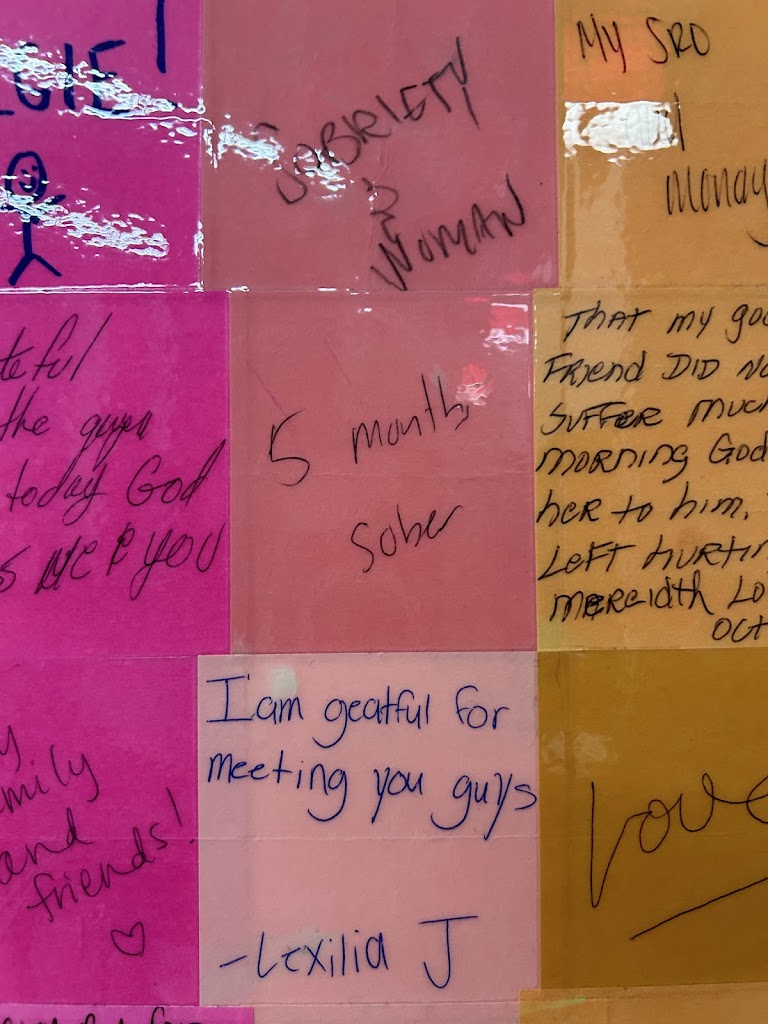 GIE!
SOBRIETY
&
WOMAN
My SRO
Monay
teful
the guys
today God
s me & you
5 months
sober
THAT my goo
FRIEND DID NO
SUFFER MUCH
MORNING God
HER to him.
LEFT HURTIN
MEREIDTH LO
OCT
y
mily
and
friends!
I am geatful for
meeting you guys
-Lexilia J
Love